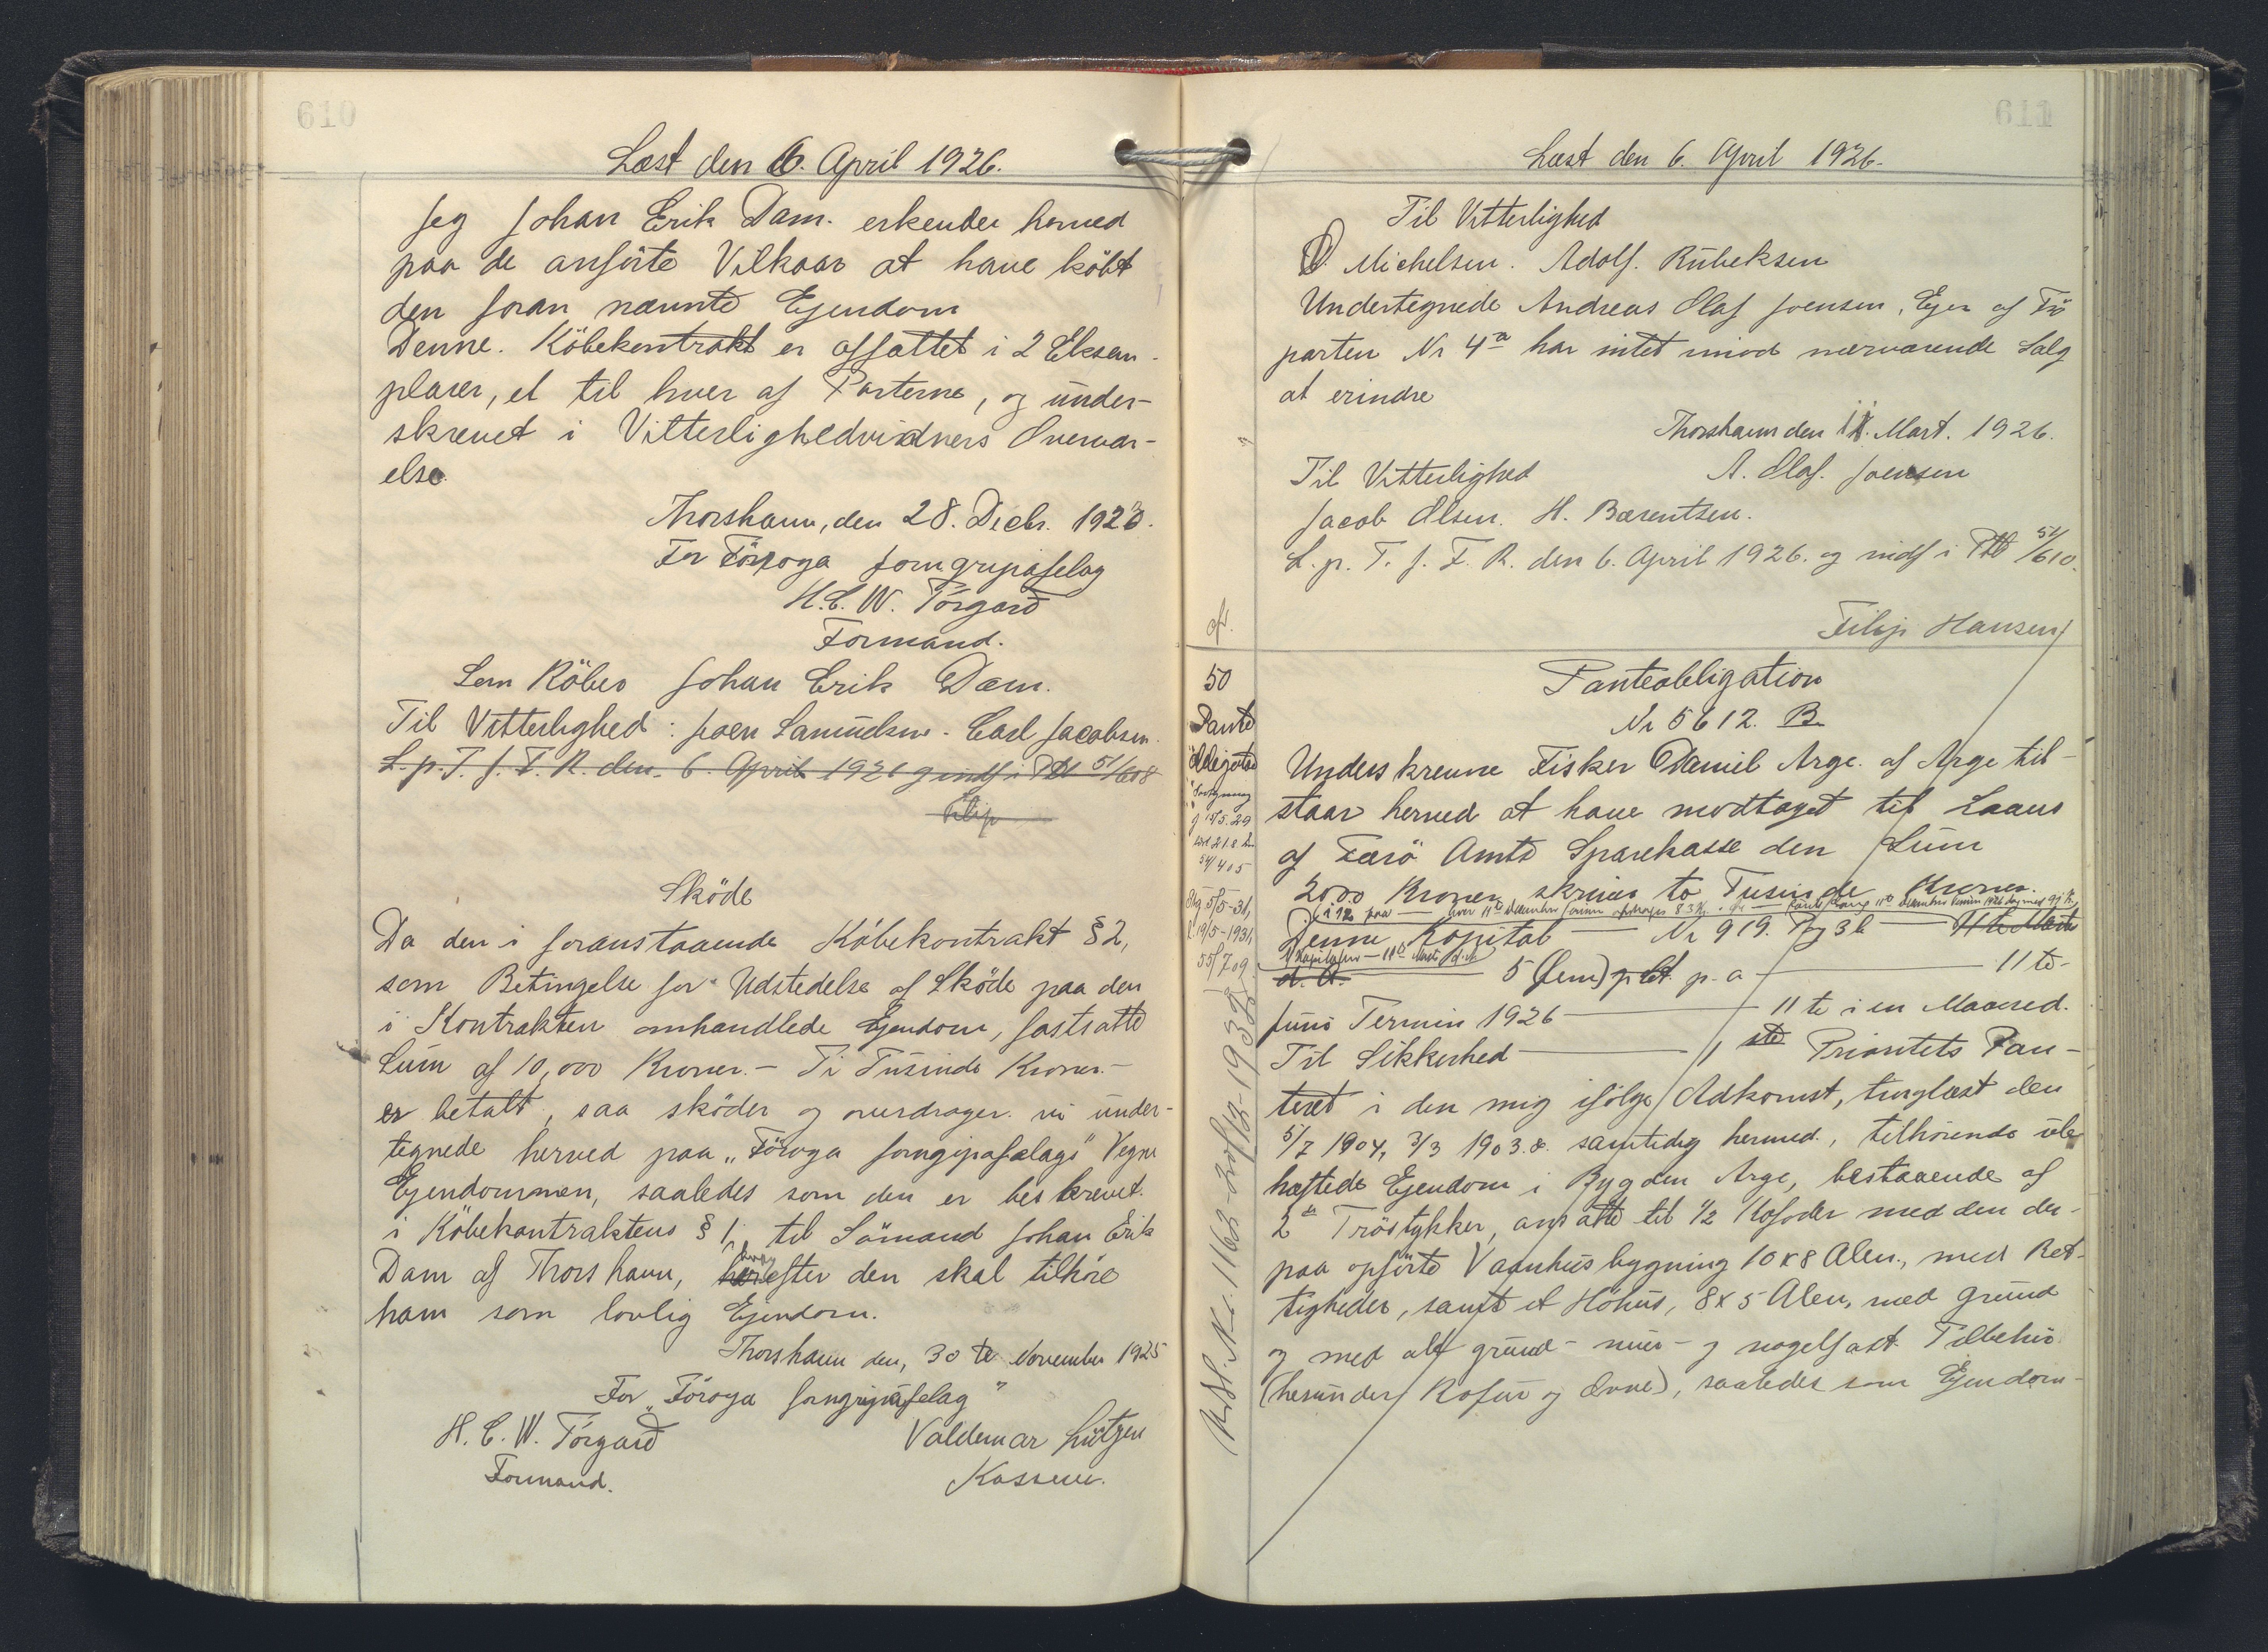 610
Læst den 6. April 1926.
Jeg Johan Erik Dam. erkender herved
paa de anførte Vilkaar at have köbt
den foran nævnte Ejendom
Denne. Köbekontrakt er affattet i 2 Eksem-
plarer, et til hver af Parterne, og under-
skrevet i Vitterlighedvidners Overvær-
else.
Thorshavn, den 28. Decbr. 1923.
For Föroya forngripafelag
H.C. W. Tórgarð
Formand.
Som Köber Johan Erik Dam.
Til Vitterlighed: Joen Samuelsen. Carl Jacobsen.
L. p. T. f. F. R. den 6. April 1926 og indf i Ptb 51/608
Filip
Sköde
Da den i foranstaaende Köbekontrakt § 2,
som Betingelse for Udstedelse af Sköde paa den
i Kontrakten omhandlede Ejendom, fastsatte
Sum af 10,000 Kroner. - Ti Tusinde Kroner. -
er betalt, saa sköder og overdrager vi under-
tegnede herved paa „Föroya forngripafelags" Vegne
Ejendommen, saaledes som den er beskrevet.
i Köbekontraktens § 1, til Sömand Johan Erik
Dam af Thorshavn, hvorefter den skal tilhöre
ham som lovlig Ejendom.
Thorshavn den, 30 te November 1925
For „Föroya forngripafelag"
H. C. W. Tórgarð Valdemar Lützen
Formand. Kasserer.
611
Læst den 6. April 1926.
Til Vitterlighed
Michelsen. Adolf. Rubeksen
Undertegnede Andreas Olaf Joensen, Ejer af Trö
parten Nr 4a har intet imod nærværende Salg
at erindre
Thorshavn den 11. Mart. 1926.
Til Vitterlighed A. Olaf. Joensen
Jacob Olsen. H. Bærentsen.
L. p. T. f. F. R. den 6. April 1926. og indf i Ptb 51/610.
Filip Hansen
50
Pante
obligation
Panteobligation
Nr 5612. B
Underskrevne Fisker Daniel Arge. af Arge til-
staar herved at have modtaget til Laans
af Færö Amts Sparekasse den Sum
2000 Kroner, skriver to Tusinde Kroner.
Denne Kapital Nr 919. Pag 36 11te Marts
d. A. 5 (fem) p Ct. p. a 11 te-
Juni Termin 1926 11 te i en Maaned.
Til Sikkerhed 1 ste Prioritets Pan-
teret i den mig ifölge Adkomst, tinglæst den
5/7 1904, 3/3 1903. & samtidig hermed., tilhörende ube
hæftede Ejendom i Bygden Arge, bestaaende af
2 Tröstykker, ansatte til 1/2 Kofoder med den der-
paa opførte Vaanhusbygning 10 x 8 Alen., med Ret-
tigheder, samt et Höhus, 8 x 5 Alen, med grund
og med alt grund- mur- og nagelfast Tilbehör
(herunder Kofur og Ovne), saaledes som Ejendom-
5/5-31,
19/5-1931
55/709
Nr. 1162-30/12-1938